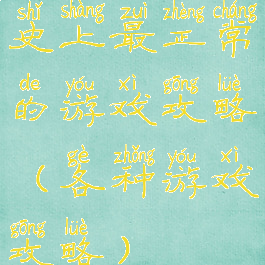 shǐ shàng zuì zhèng cháng
史上最正常
de yóu xì gōng lüè
的游戏攻略
gè zhǒng yóu xì
（各种游戏
gōng lüè
攻略）